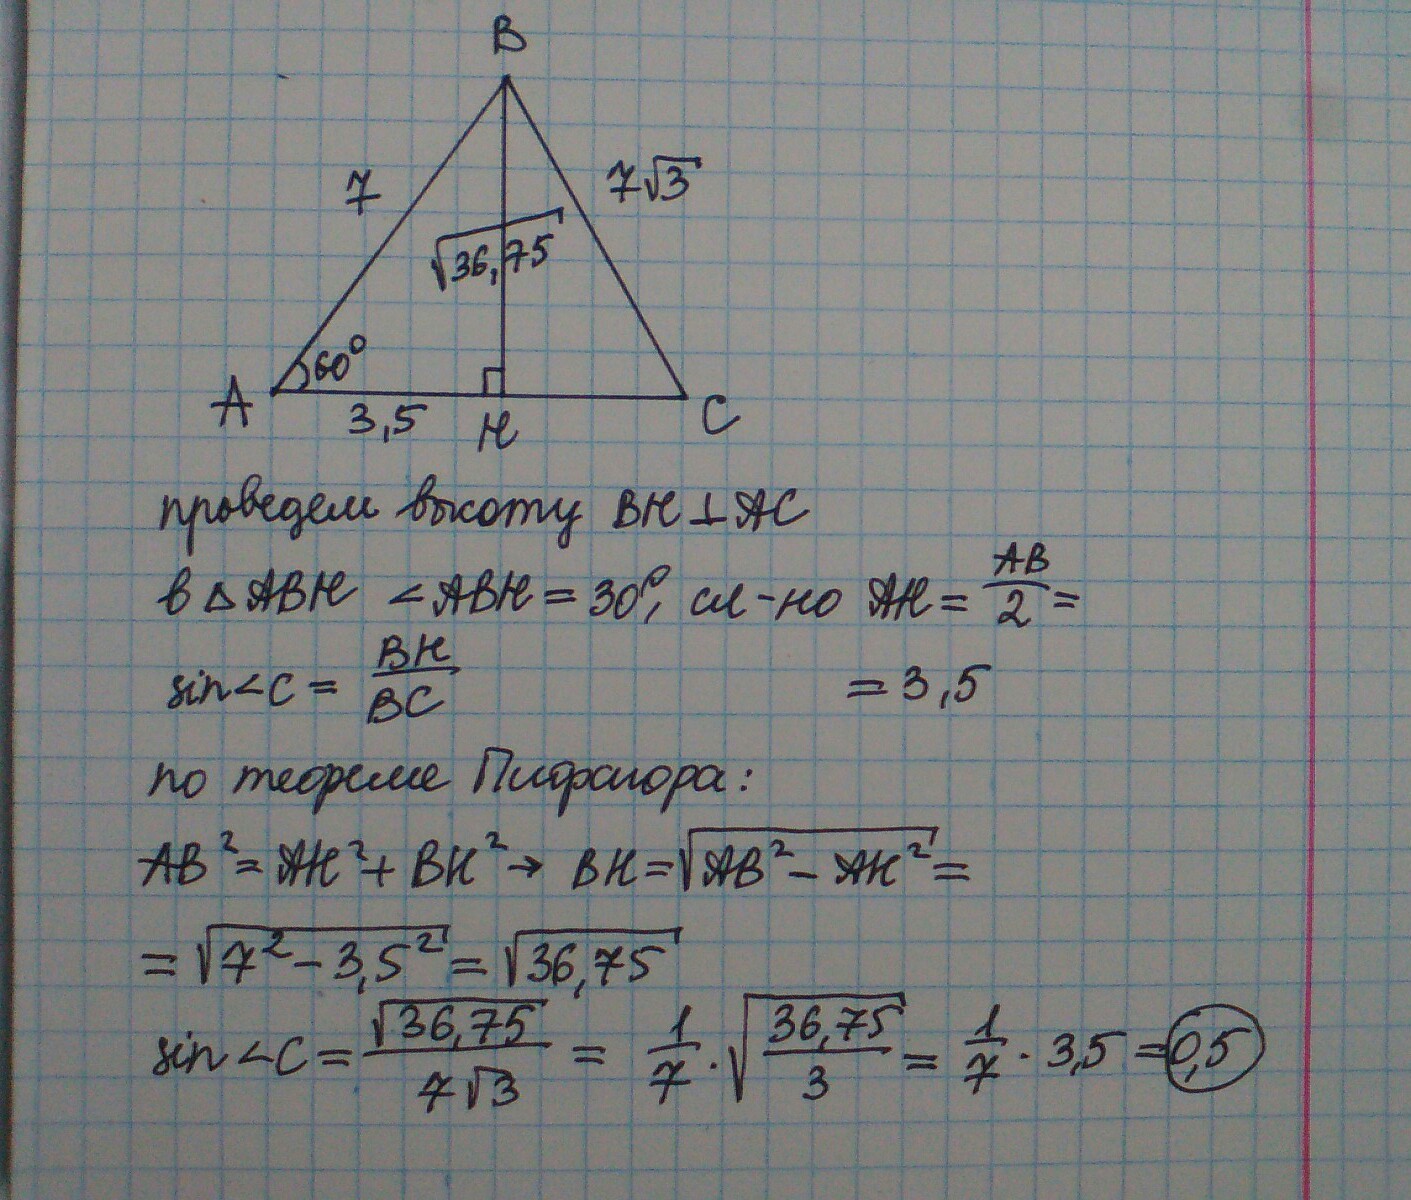 B
7
7√3
√36,75
60°
A
3,5
H
C
проведем высоту BH ⊥ AC
в △ ABH ∠ABH = 30°, сл-но AH = AB/2 =
= 3,5
sin∠C = BH/BC
по теореме Пифагора:
AB² = AH² + BH² → BH = √(AB² - AH²) =
= √(7² - 3,5²) = √36,75
sin∠C = √36,75/7√3 = 1/7 · √(36,75/3) = 1/7 · 3,5 = 0,5